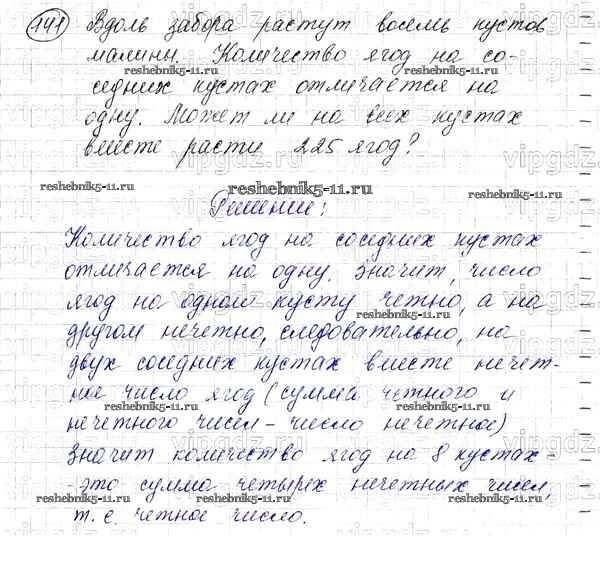 141 Вдоль забора растут восемь кустов
малины. Количество ягод на со-
reshebnik5-11.ru reshebnik5-11.ru
седних кустах отличается на
одну. Может ли на всех кустах
вместе расти 225 ягод?
reshebnik5-11.ru reshebnik5-11.ru
reshebnik5-11.ru
Решение:
Количество ягод на соседних кустах
отличается на одну. Значит, число
ягод на одном кусту четно, а на
другом нечетно, следовательно, на
двух соседних кустах вместе нечет-
ное число ягод (сумма четного и
reshebnik5-11.ru reshebnik5-11.ru
нечетного чисел - число нечетное)
Значит количество ягод на 8 кустах-
-это сумма четырех нечетных чисел,
reshebnik5-11.ru reshebnik5-11.ru
т. е. четное число.
vipgdz.ru